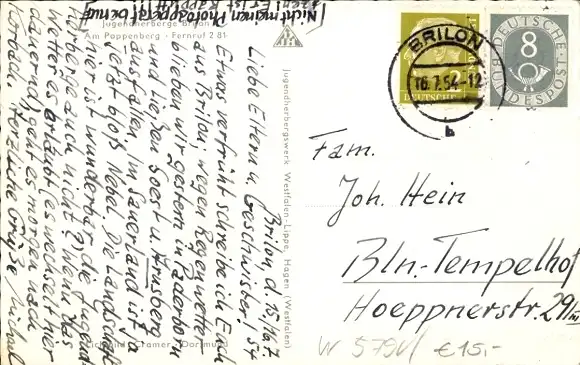 [Nicht meinen Photoapparat berauf-
Jugendherberge Brilon
Am Pappenberg · Fernruf 281
Brilon, d. 15./16.7.54
Liebe Eltern u. Geschwister!
Etwas verfrüht schreibe ich Euch
aus Brilon, wegen Regenwetter
blieben wir gestern in Paderborn
und ließen Soest u. Arnsberg
ausfallen. Im Sauerland ist ja
jetzt bloß Nebel. Die Landschaft
hier ist wunderbar, die Jugend-
herberge auch nicht
Wetter es erlaubt, es wechselt hier
dauernd, geht es morgen nach
Herzliche Grüße, Michael
Cramer · Dortmund
Jugendherbergswerk Westfalen-Lippe, Hagen (Westfalen)
BRILON
16.7.54-12
b
DEUTSCHE
DEUTSCHE
BUNDESPOST
8
Fam.
Joh. Hein
Bln.-Tempelhof
Hoeppnerstr. 29III
W 579V/ €15,-